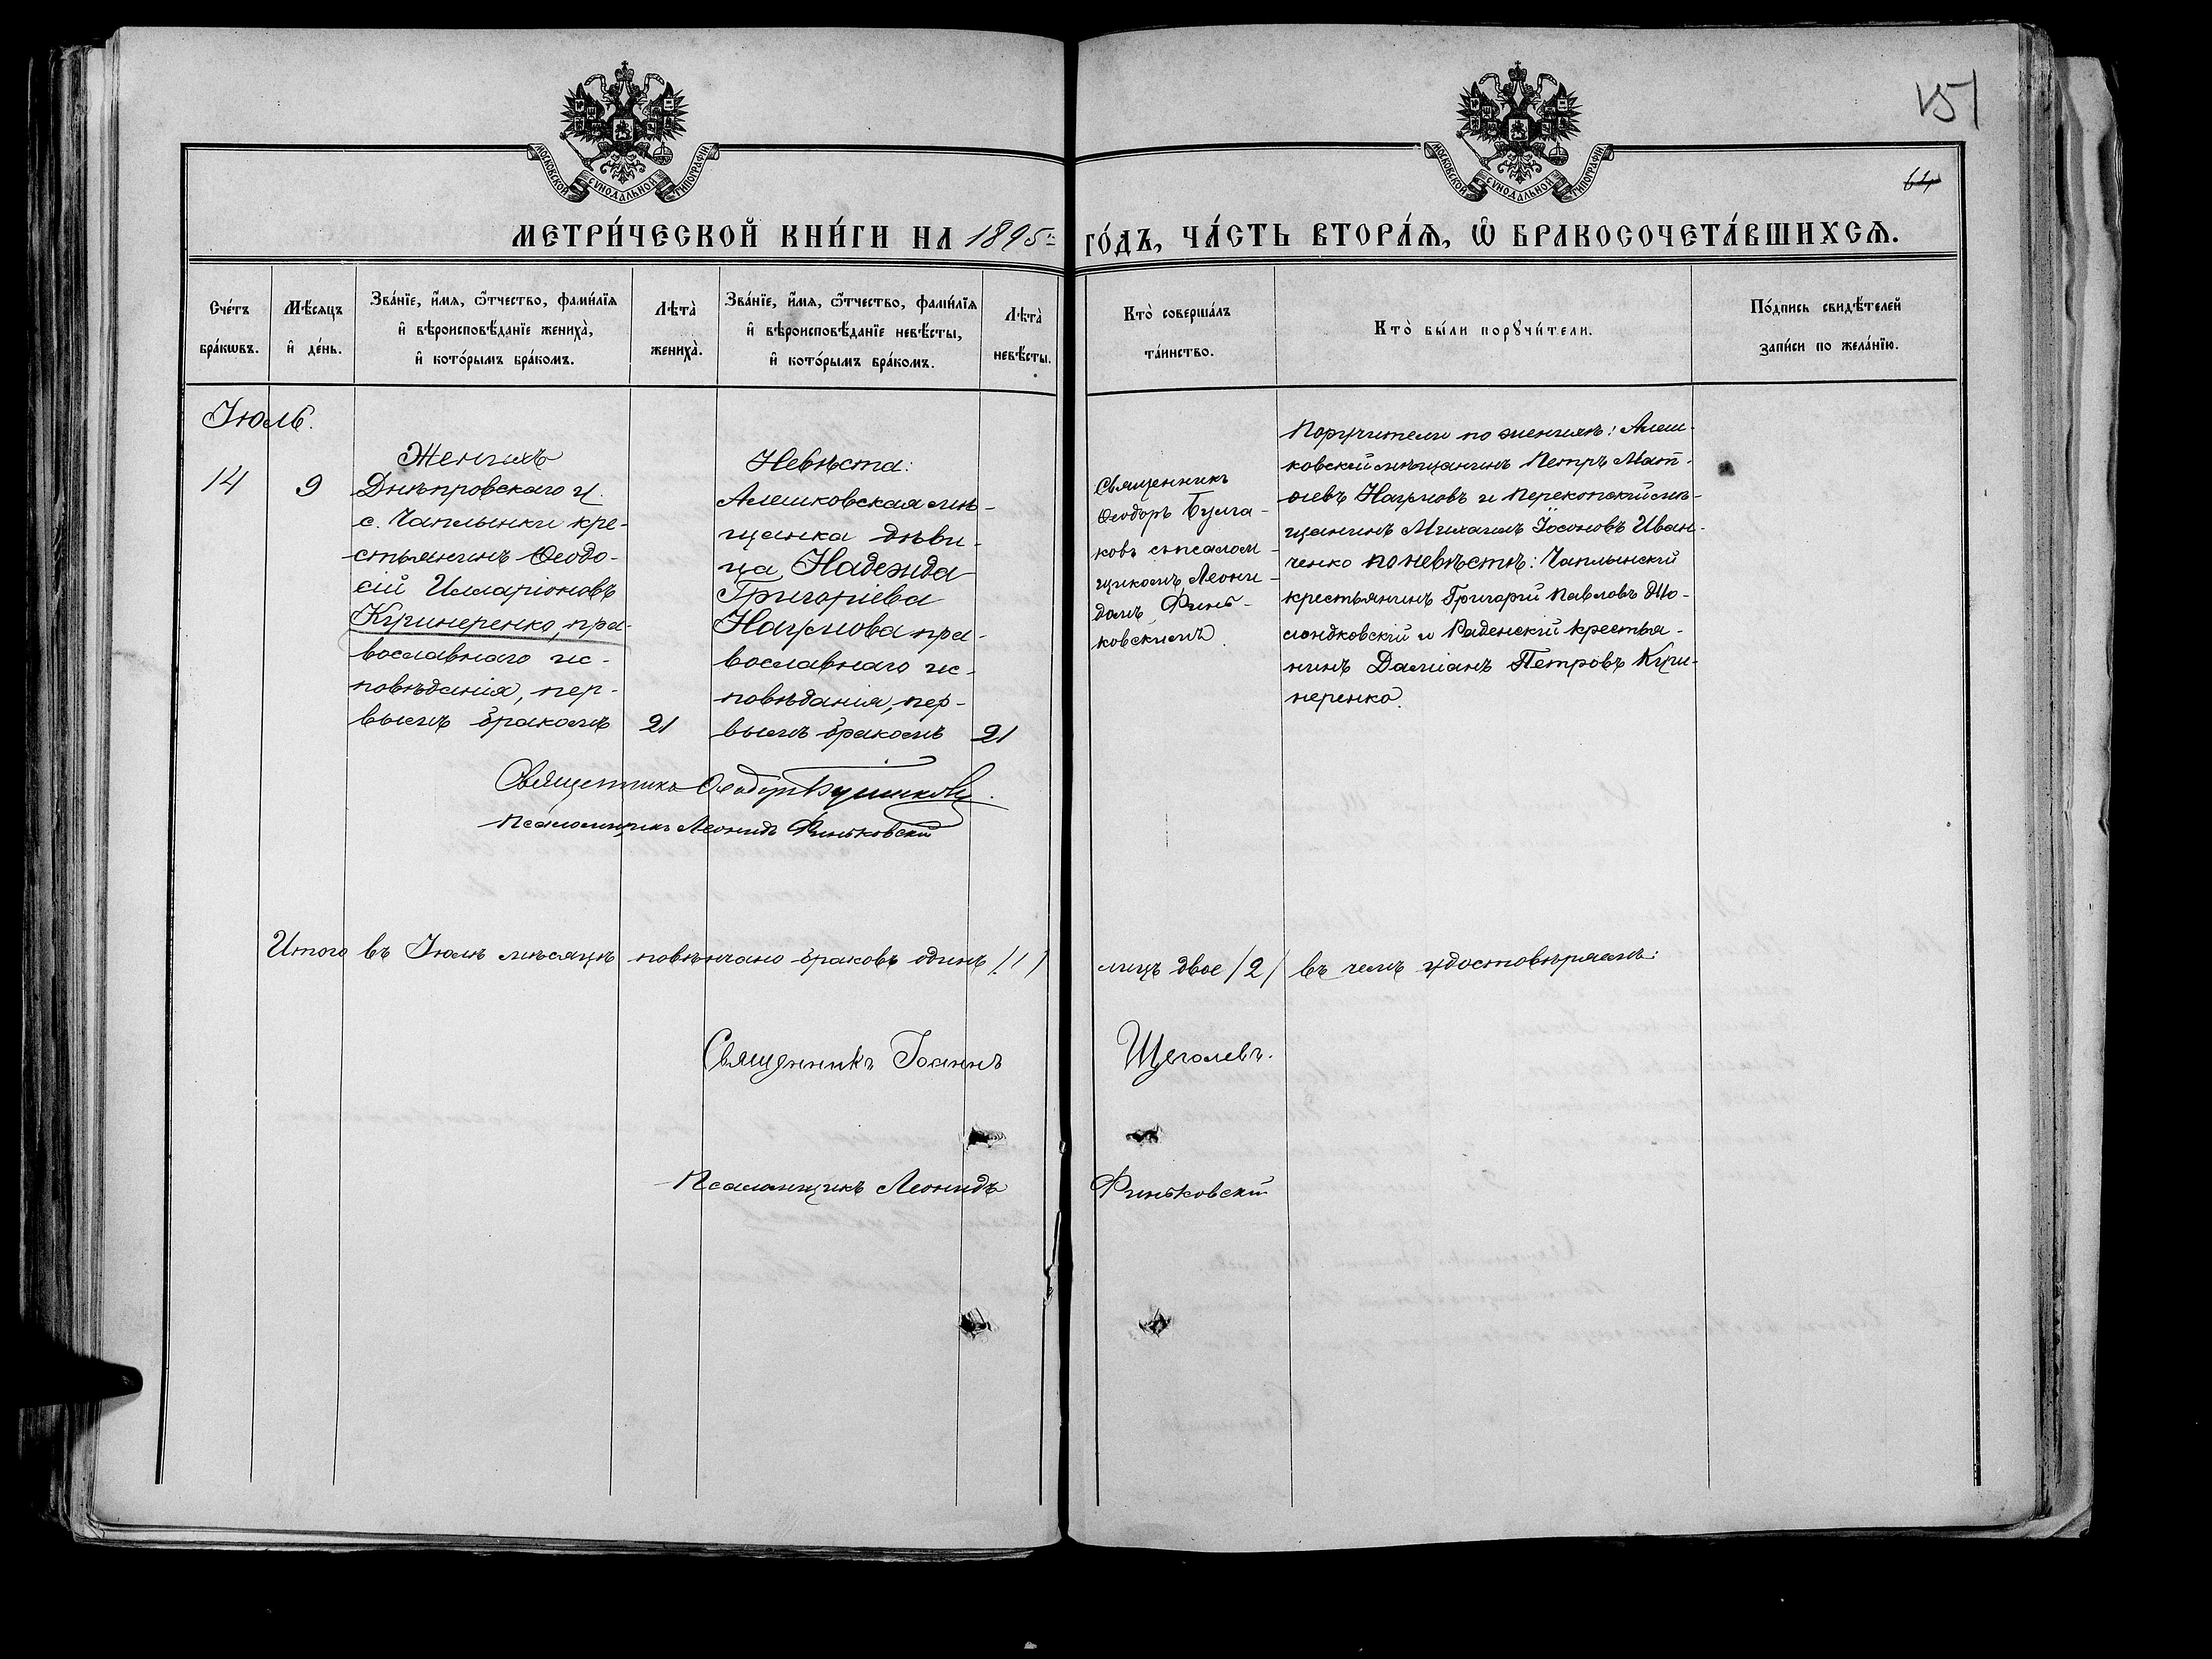 151
64
МОСКОВСКОЙ СѴНОДАЛЬНОЙ ТИПОГРАФІИ
МОСКОВСКОЙ СѴНОДАЛЬНОЙ ТИПОГРАФІИ
МЕТРИ́ЧЕСКОЙ КНИ́ГИ НА 1895 ГО́ДЪ, ЧА́СТЬ ВТОРА́Ѧ, Ѽ БРАКОСОЧЕТА́ВШИХСѦ.
Сче́тъ
бра́кѡвъ.
Мѣ́сяцъ
и҆ де́нь.
Зва́нїе, и҆́мѧ, ѻ҆́тчество, фами́лїѧ
и҆ вѣроисповѣ́данїе жениха̀,
и҆ кото́рымъ бра́комъ.
Лѣта̀
жениха̀.
Зва́нїе, и҆́мѧ, ѻ҆́тчество, фами́лїѧ
и҆ вѣроисповѣ́данїе невѣ́сты,
и҆ кото́рымъ бра́комъ.
Лѣта̀
невѣ́сты.
Кто̀ соверша́лъ
та́инство.
Кто̀ бы́ли порꙋчи́тели.
По́дпись свидѣ́телей
за́писи по жела́нїю.
Іюль.
14
9
Женихъ
Днѣпровскаго у.
с. Чаплынки кре-
стьянинъ Ѳеодо-
сій Илларіоновъ
Кушнеренко, пра-
вославнаго ис-
повѣданія, пер-
вымъ бракомъ
21
Невѣста:
Алешковская мѣ-
щанка дѣви-
ца Надежда
Григоріева
Наумова пра-
вославнаго ис-
повѣданія, пер-
вымъ бракомъ
21
Священникъ
Ѳеодоръ Булга-
ковъ съ псалом-
щикомъ Леони-
домъ Финь-
ковскимъ.
Поручители по женихѣ: Алеш-
ковскій мѣщанинъ Петръ Мат-
ѳіевъ Наумовъ и Перекопскій мѣ-
щанинъ Михаилъ Іосифовъ Иван-
ченко по невѣстѣ: Чаплынскій
крестьянинъ Григорій Павловъ
и Раденскій крестья-
нинъ Даміанъ Петровъ Куш-
неренко.
Священникъ Ѳеодоръ Булгаковъ
Псаломщикъ Леонидъ Финьковскій
Итого въ Іюлѣ мѣсяцѣ повѣнчано браковъ одинъ /1/ лицъ двое /2/ въ чемъ удостовѣряемъ:
Священникъ Іоаннъ Щеголевъ.
Псаломщикъ Леонидъ Финьковскій